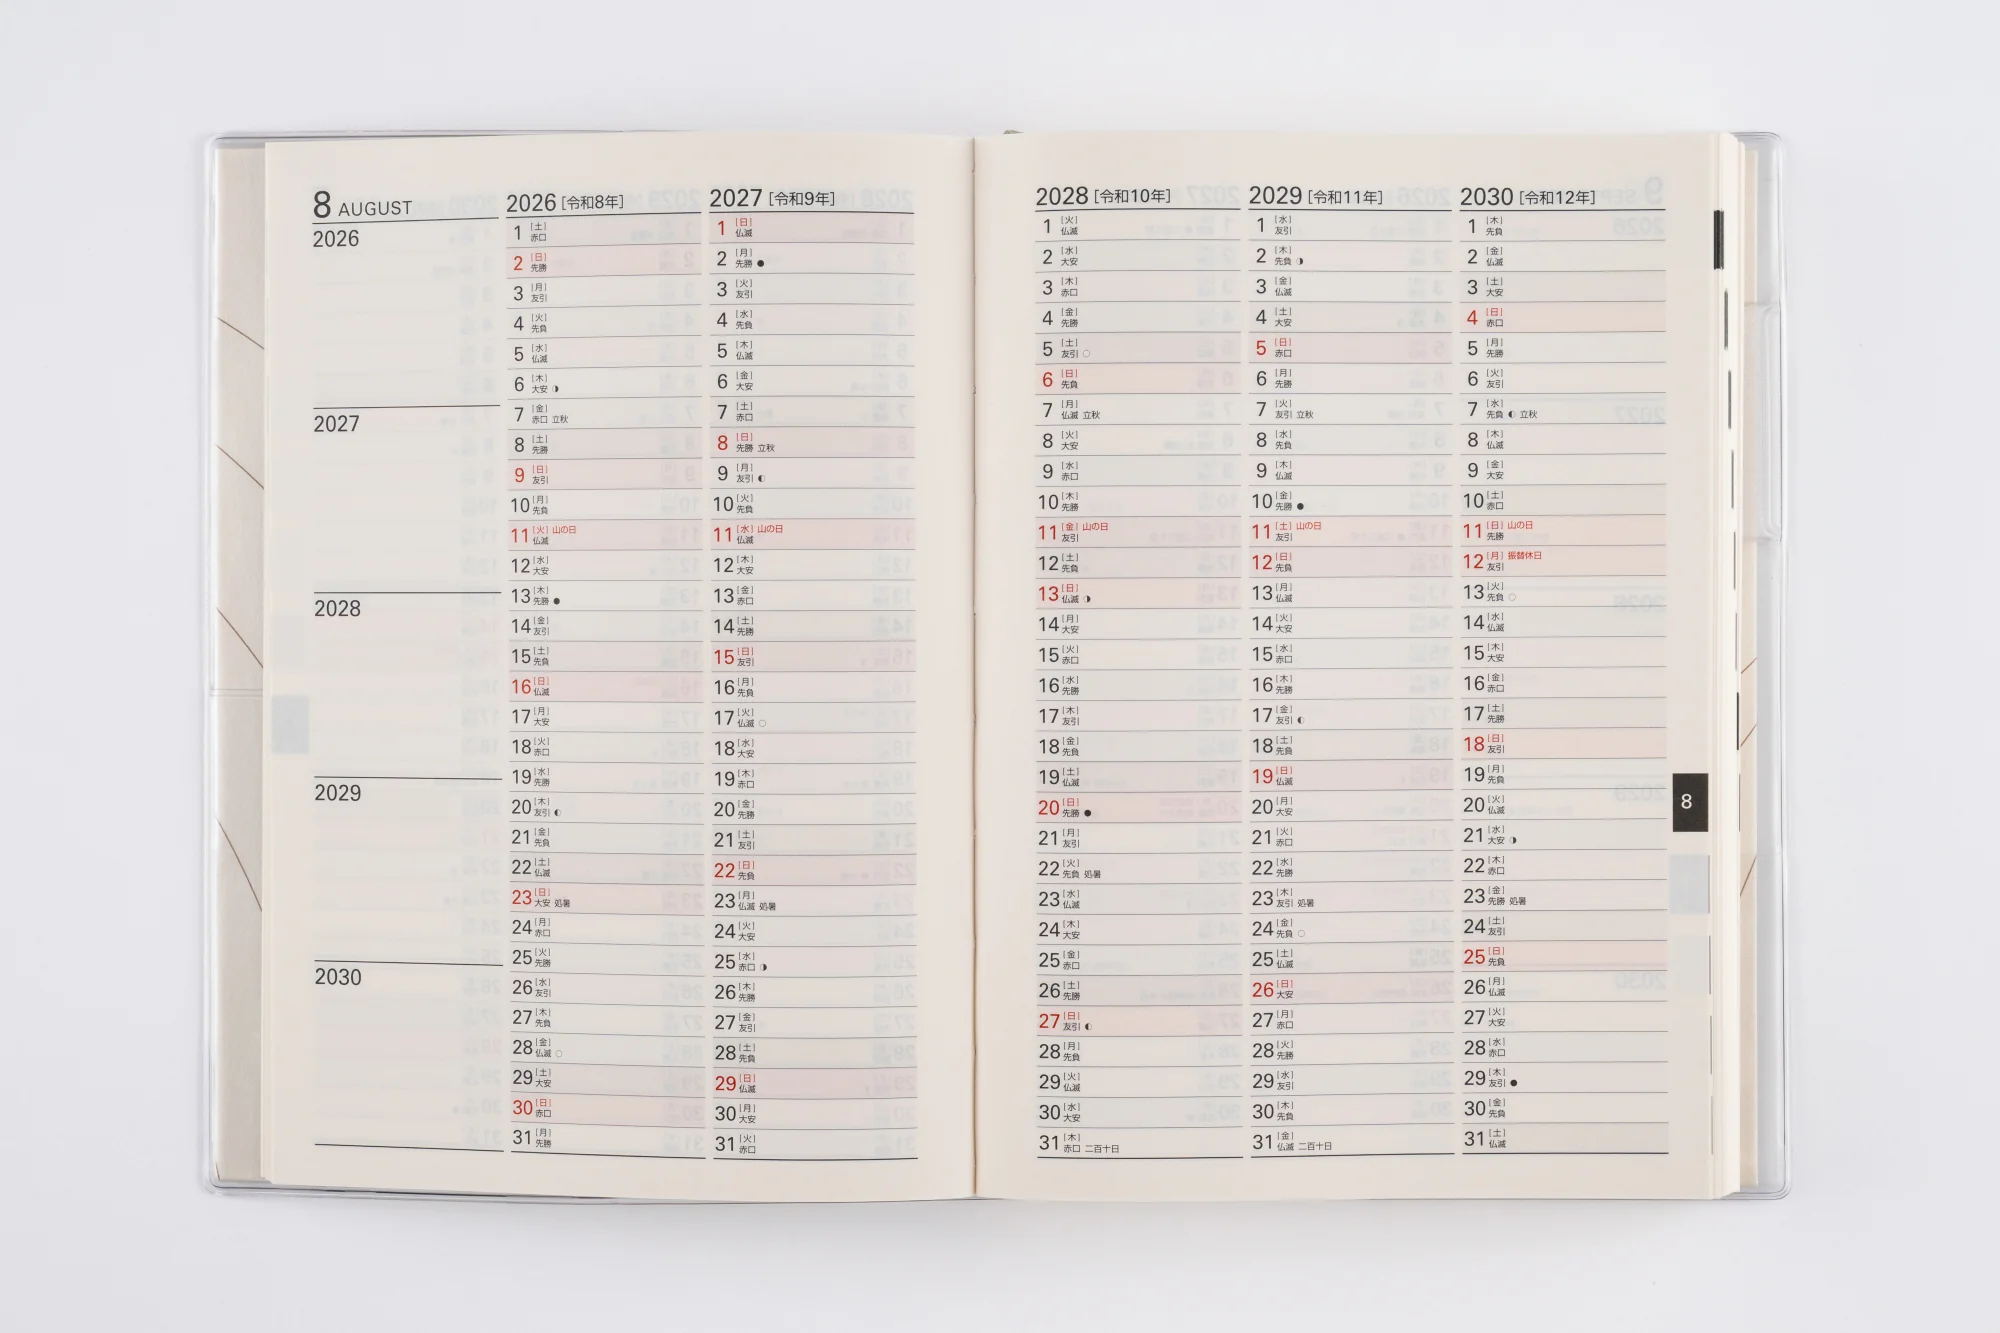 8 AUGUST
2026
2027
2028
2029
2030
2026 [令和8年]
1 [土] 赤口
2 [日] 先勝
3 [月] 友引
4 [火] 先負
5 [水] 仏滅
6 [木] 大安 ◑
7 [金] 赤口 立秋
8 [土] 先勝
9 [日] 友引
10 [月] 先負
11 [火] 山の日 仏滅
12 [水] 大安
13 [木] 先勝 ●
14 [金] 友引
15 [土] 先負
16 [日] 仏滅
17 [月] 大安
18 [火] 赤口
19 [水] 先勝
20 [木] 友引 ◐
21 [金] 先負
22 [土] 仏滅
23 [日] 大安 処暑
24 [月] 赤口
25 [火] 先勝
26 [水] 友引
27 [木] 先負
28 [金] 仏滅 ○
29 [土] 大安
30 [日] 赤口
31 [月] 先勝
2027 [令和9年]
1 [日] 仏滅
2 [月] 先勝 ●
3 [火] 友引
4 [水] 先負
5 [木] 仏滅
6 [金] 大安
7 [土] 赤口
8 [日] 先勝 立秋
9 [月] 友引 ◐
10 [火] 先負
11 [水] 山の日 仏滅
12 [木] 大安
13 [金] 赤口
14 [土] 先勝
15 [日] 友引
16 [月] 先負
17 [火] 仏滅 ○
18 [水] 大安
19 [木] 赤口
20 [金] 先勝
21 [土] 友引
22 [日] 先負
23 [月] 仏滅 処暑
24 [火] 大安
25 [水] 赤口 ◑
26 [木] 先勝
27 [金] 友引
28 [土] 先負
29 [日] 仏滅
30 [月] 大安
31 [火] 赤口
2028 [令和10年]
1 [火] 仏滅
2 [水] 大安
3 [木] 赤口
4 [金] 先勝
5 [土] 友引 ○
6 [日] 先負
7 [月] 仏滅 立秋
8 [火] 大安
9 [水] 赤口
10 [木] 先勝
11 [金] 山の日 友引
12 [土] 先負
13 [日] 仏滅 ◑
14 [月] 大安
15 [火] 赤口
16 [水] 先勝
17 [木] 友引
18 [金] 先負
19 [土] 仏滅
20 [日] 先勝 ●
21 [月] 友引
22 [火] 先負 処暑
23 [水] 仏滅
24 [木] 大安
25 [金] 赤口
26 [土] 先勝
27 [日] 友引 ◐
28 [月] 先負
29 [火] 仏滅
30 [水] 大安
31 [木] 赤口 二百十日
2029 [令和11年]
1 [水] 友引
2 [木] 先負 ◑
3 [金] 仏滅
4 [土] 大安
5 [日] 赤口
6 [月] 先勝
7 [火] 友引 立秋
8 [水] 先負
9 [木] 仏滅
10 [金] 先勝 ●
11 [土] 山の日 友引
12 [日] 先負
13 [月] 仏滅
14 [火] 大安
15 [水] 赤口
16 [木] 先勝
17 [金] 友引 ◐
18 [土] 先負
19 [日] 仏滅
20 [月] 大安
21 [火] 赤口
22 [水] 先勝
23 [木] 友引 処暑
24 [金] 先負 ○
25 [土] 仏滅
26 [日] 大安
27 [月] 赤口
28 [火] 先勝
29 [水] 友引
30 [木] 先負
31 [金] 仏滅 二百十日
2030 [令和12年]
1 [木] 先負
2 [金] 仏滅
3 [土] 大安
4 [日] 赤口
5 [月] 先勝
6 [火] 友引
7 [水] 先負 ◐ 立秋
8 [木] 仏滅
9 [金] 大安
10 [土] 赤口
11 [日] 山の日 先勝
12 [月] 振替休日 友引
13 [火] 先負 ○
14 [水] 仏滅
15 [木] 大安
16 [金] 赤口
17 [土] 先勝
18 [日] 友引
19 [月] 先負
20 [火] 仏滅
21 [水] 大安 ◑
22 [木] 赤口
23 [金] 先勝 処暑
24 [土] 友引
25 [日] 先負
26 [月] 仏滅
27 [火] 大安
28 [水] 赤口
29 [木] 友引 ●
30 [金] 先負
31 [土] 仏滅
8